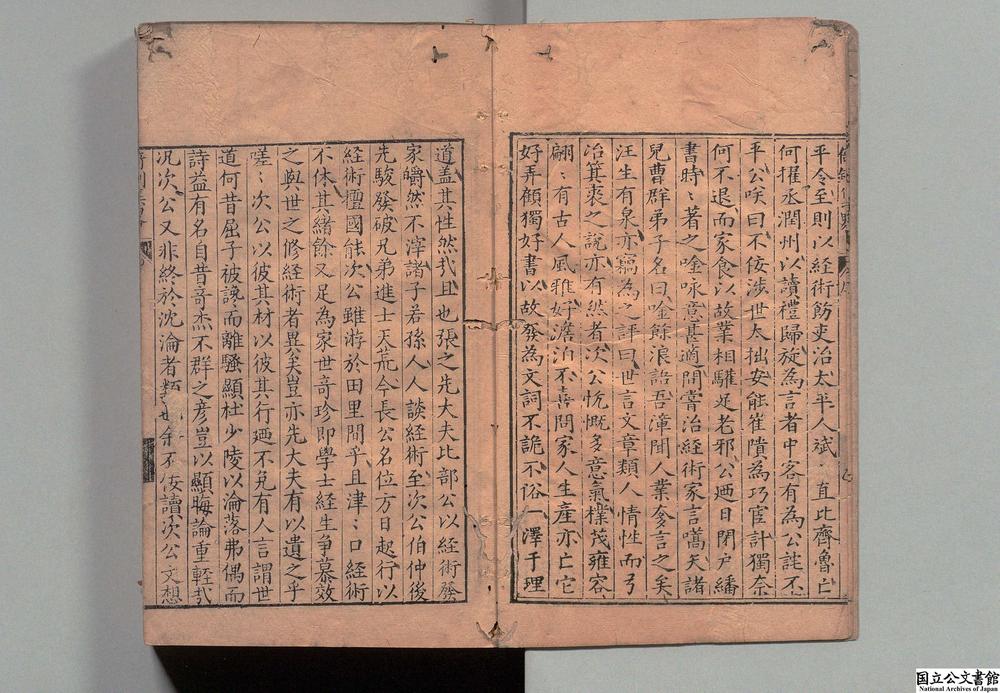 平令至則以經術飭吏治太平人斌
直比齊魯亡
何擢丞潤州以讀禮歸旋為言者中客有為公詫不
平公咲曰不佞涉世太拙安能崔隤為巧宦計獨奈
何不退而家食以故業相驩足老邪公迺日閉户繙
書時〻著之唫咏意甚適間嘗治經術家言嚆矢諸
兒曹群弟子名曰唫餘浪語吾漳聞人業爹言之矣
汪生有泉亦竊為之評曰世言文章類人情性而弓
冶箕裘之說亦有然者次公忼慨多意氣樸茂雍容
翩〻有古人風雅好澹泊不喜問家人生産亦亡它
好弄顧獨好書以故發為文詞不詭不俗一澤于理
道盖其性然㢤且也張之先大夫比部公以經術發
家皭然不滓諸子若孫人人談經術至次公伯仲後
先駿發破兄弟進士天荒今長公名位方日起行以
經術禮國能次公雖游於田里間乎且津〻口經術
不休其緒餘又足為家世竒珍即學士經生争慕效
之與世之修經術者異矣豈亦先大夫有以遺之乎
嗟〻次公以彼其材以彼其行廼不免有人言謂世
道何昔屈子被讒而離騷顯杜少陵以淪落弗偶而
詩益有名自昔竒杰不群之彦豈以顯晦論重輊㢤
況次公又非終於沈淪者類
余不佞讀次公文想
国立公文書館
National Archives of Japan